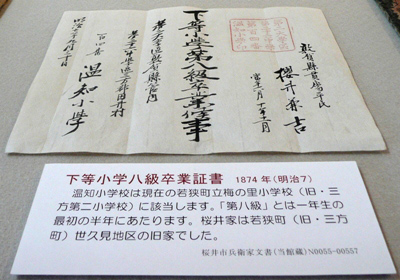 敦賀縣貫属平民
櫻井市吉
下等小學第八級卒業候事
温知小學
下等小学八級卒業証書 1874年(明治7)
温知小学校は現在の若狭町立梅の里小学校(旧・三
方第二小学校)に該当します。「第八級」とは一年生の
最初の半年にあたります。桜井家は若狭町(旧・三方
町)世久見地区の旧家でした。
桜井市兵衛家文書(当館蔵)N0055-00557